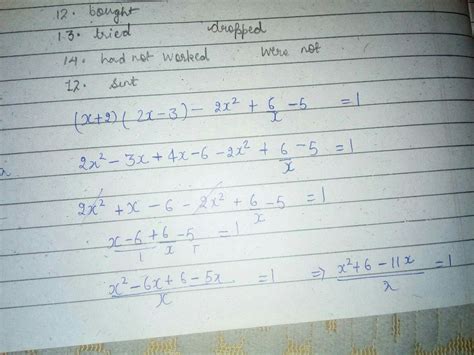 12. bought
13. tried dropped
14. had not worked were not
12. sent
(x+2)(2x-3) - 2x² + 6/x - 5 = 1
2x² - 3x + 4x - 6 - 2x² + 6/x - 5 = 1
2x² + x - 6 - 2x² + 6/x - 5 = 1
x/1 - 6 + 6/x - 5/1 = 1
x² - 6x + 6 - 5x/x = 1 ⇒ x² + 6 - 11x/x = 1